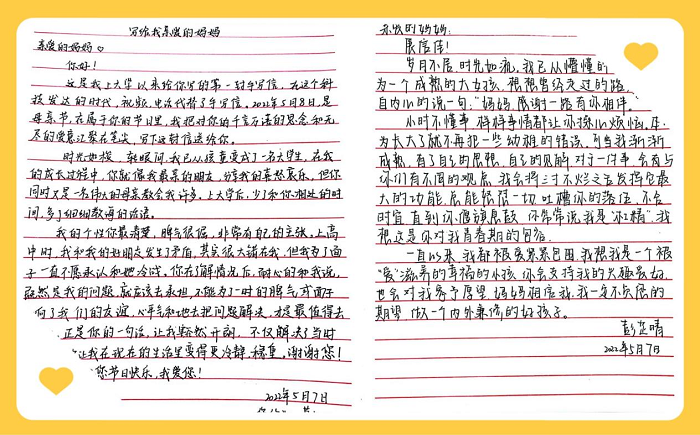 写给我亲爱的妈妈
亲爱的妈妈♡
你好!
这是我上大学以来给你写的第一封手写信。在这个科
技发达的时代,电话代替了手写信。2022年5月8日,是
母亲节,在属于你的节日里,我把对你的千言万语的思念和无
尽的爱意汇聚在笔尖,写下这封信送给你。
时光如梭,转眼间,我已从孩童变成了一名大学生,在我
的成长过程中,你就像我最亲的朋友,分享我的喜怒哀乐。但你
同时又是一名伟大的母亲教会我许多。上大学后,少了和你相处的时
间,多了细细教诲的话语。
我的个性你最清楚,脾气很倔,非常有自己的主张,上高
中时,我和我的好朋友发生了矛盾,其实很大错在我,但我为了面
子一直不愿承认和她冷战。你在了解情况后,耐心的和我说,
既然是我的问题,就应该去承担,不能为了一时的脾气或面子
伤了我们的友谊,心平气和地去把问题解决,才是最值得去
正是你的一句话,让我豁然开朗,不仅解决了当时
让我在现在的生活里变得更冷静,稳重,谢谢您!
您节日快乐,我爱你!
2022年5月7日
亲爱的妈妈:
展信佳!
岁月不居,时光如流,我已从懵懂的
为一个成熟的大女孩,想想曾经走过的路,
自内心的说一句:“妈妈,感谢一路有你相伴。”
小时不懂事,样样事情都让你操心烦恼,
为长大了就不再犯一些幼稚的错误,可当我渐渐
成熟,有了自己的思想,自己的见解,对于一件事,会有与
你们有不同的观点,我会将三寸不烂之舌发挥它最
大的功能,总能够借一切吐槽你的落伍,不会
时宜,直到你偃旗息鼓,你常常说我是“杠精”,我
想这是你对我青春期的包容。
一直以来,我都被爱紧紧包围,我想我是一个被
“爱”滋养的幸福的小孩,你会支持我的兴趣爱好,
也会对我寄予厚望,妈妈相信我,我一定不负您的
期望,做一个内外兼修的好孩子。
彭芷晴
2022年5月7日